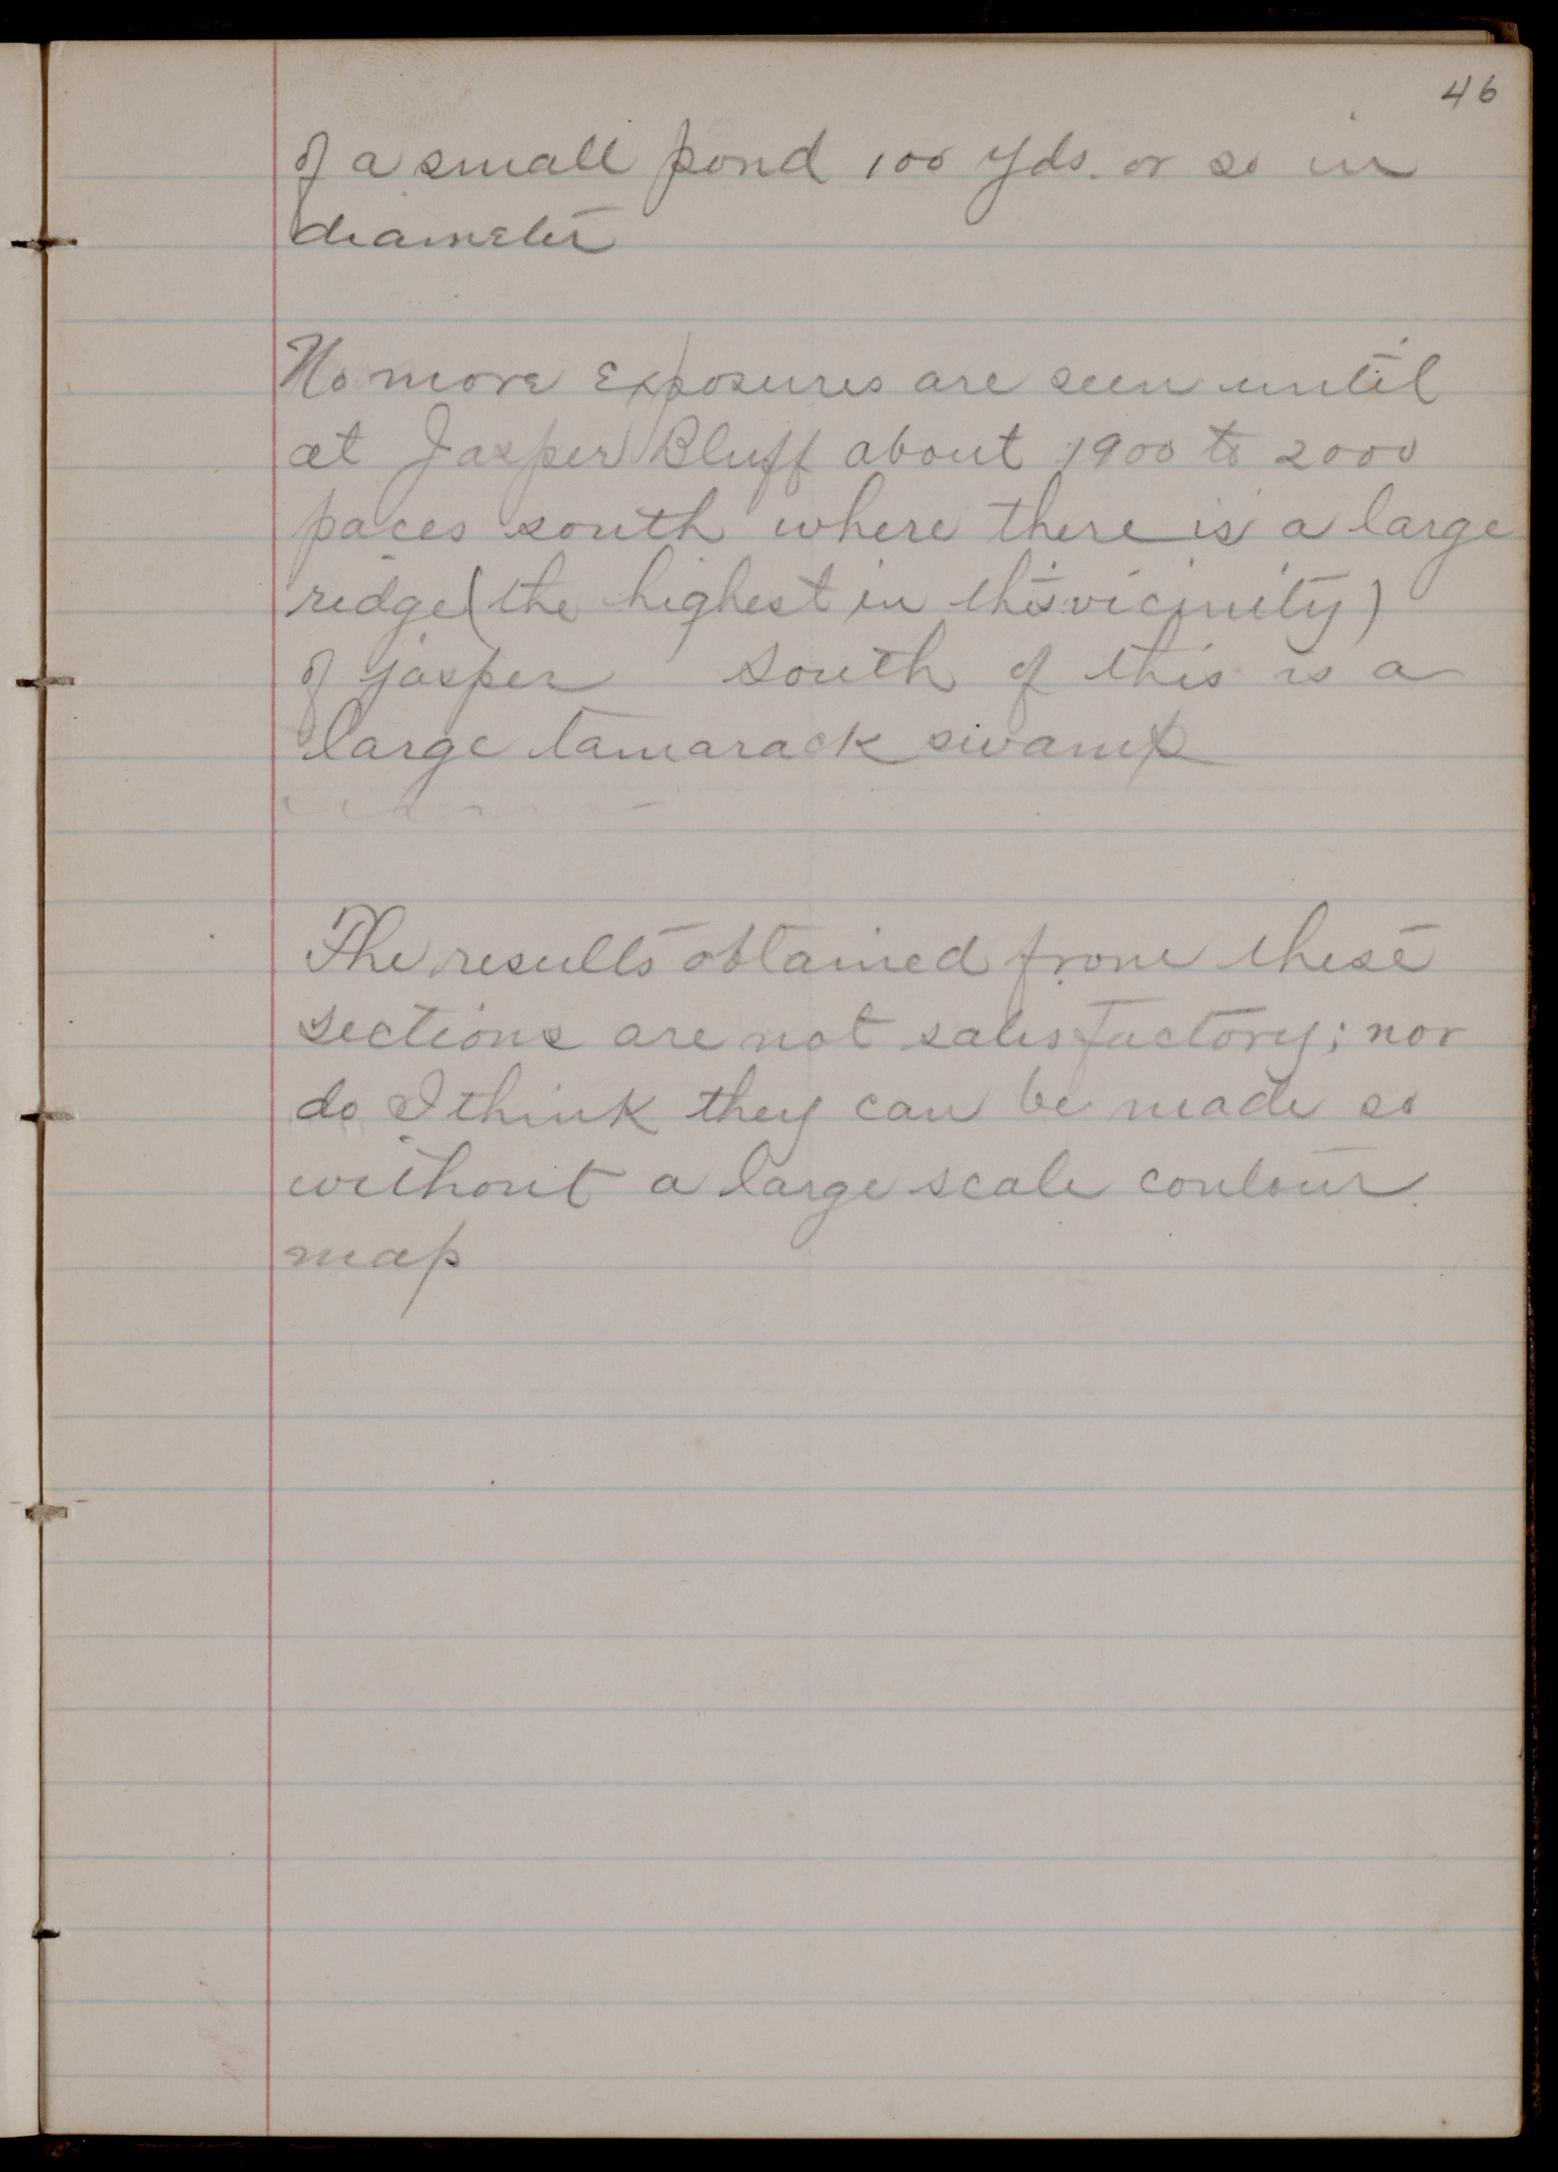 46
of a small pond 100 yds. or so in
diameter
No more exposures are seen until
at Jasper Bluff about 1900 to 2000
paces south where there is a large
ridge (the highest in this vicinity)
of jasper South of this is a
large tamarack swamp
The results obtained from these
sections are not satisfactory; nor
do I think they can be made so
without a large scale contour
map